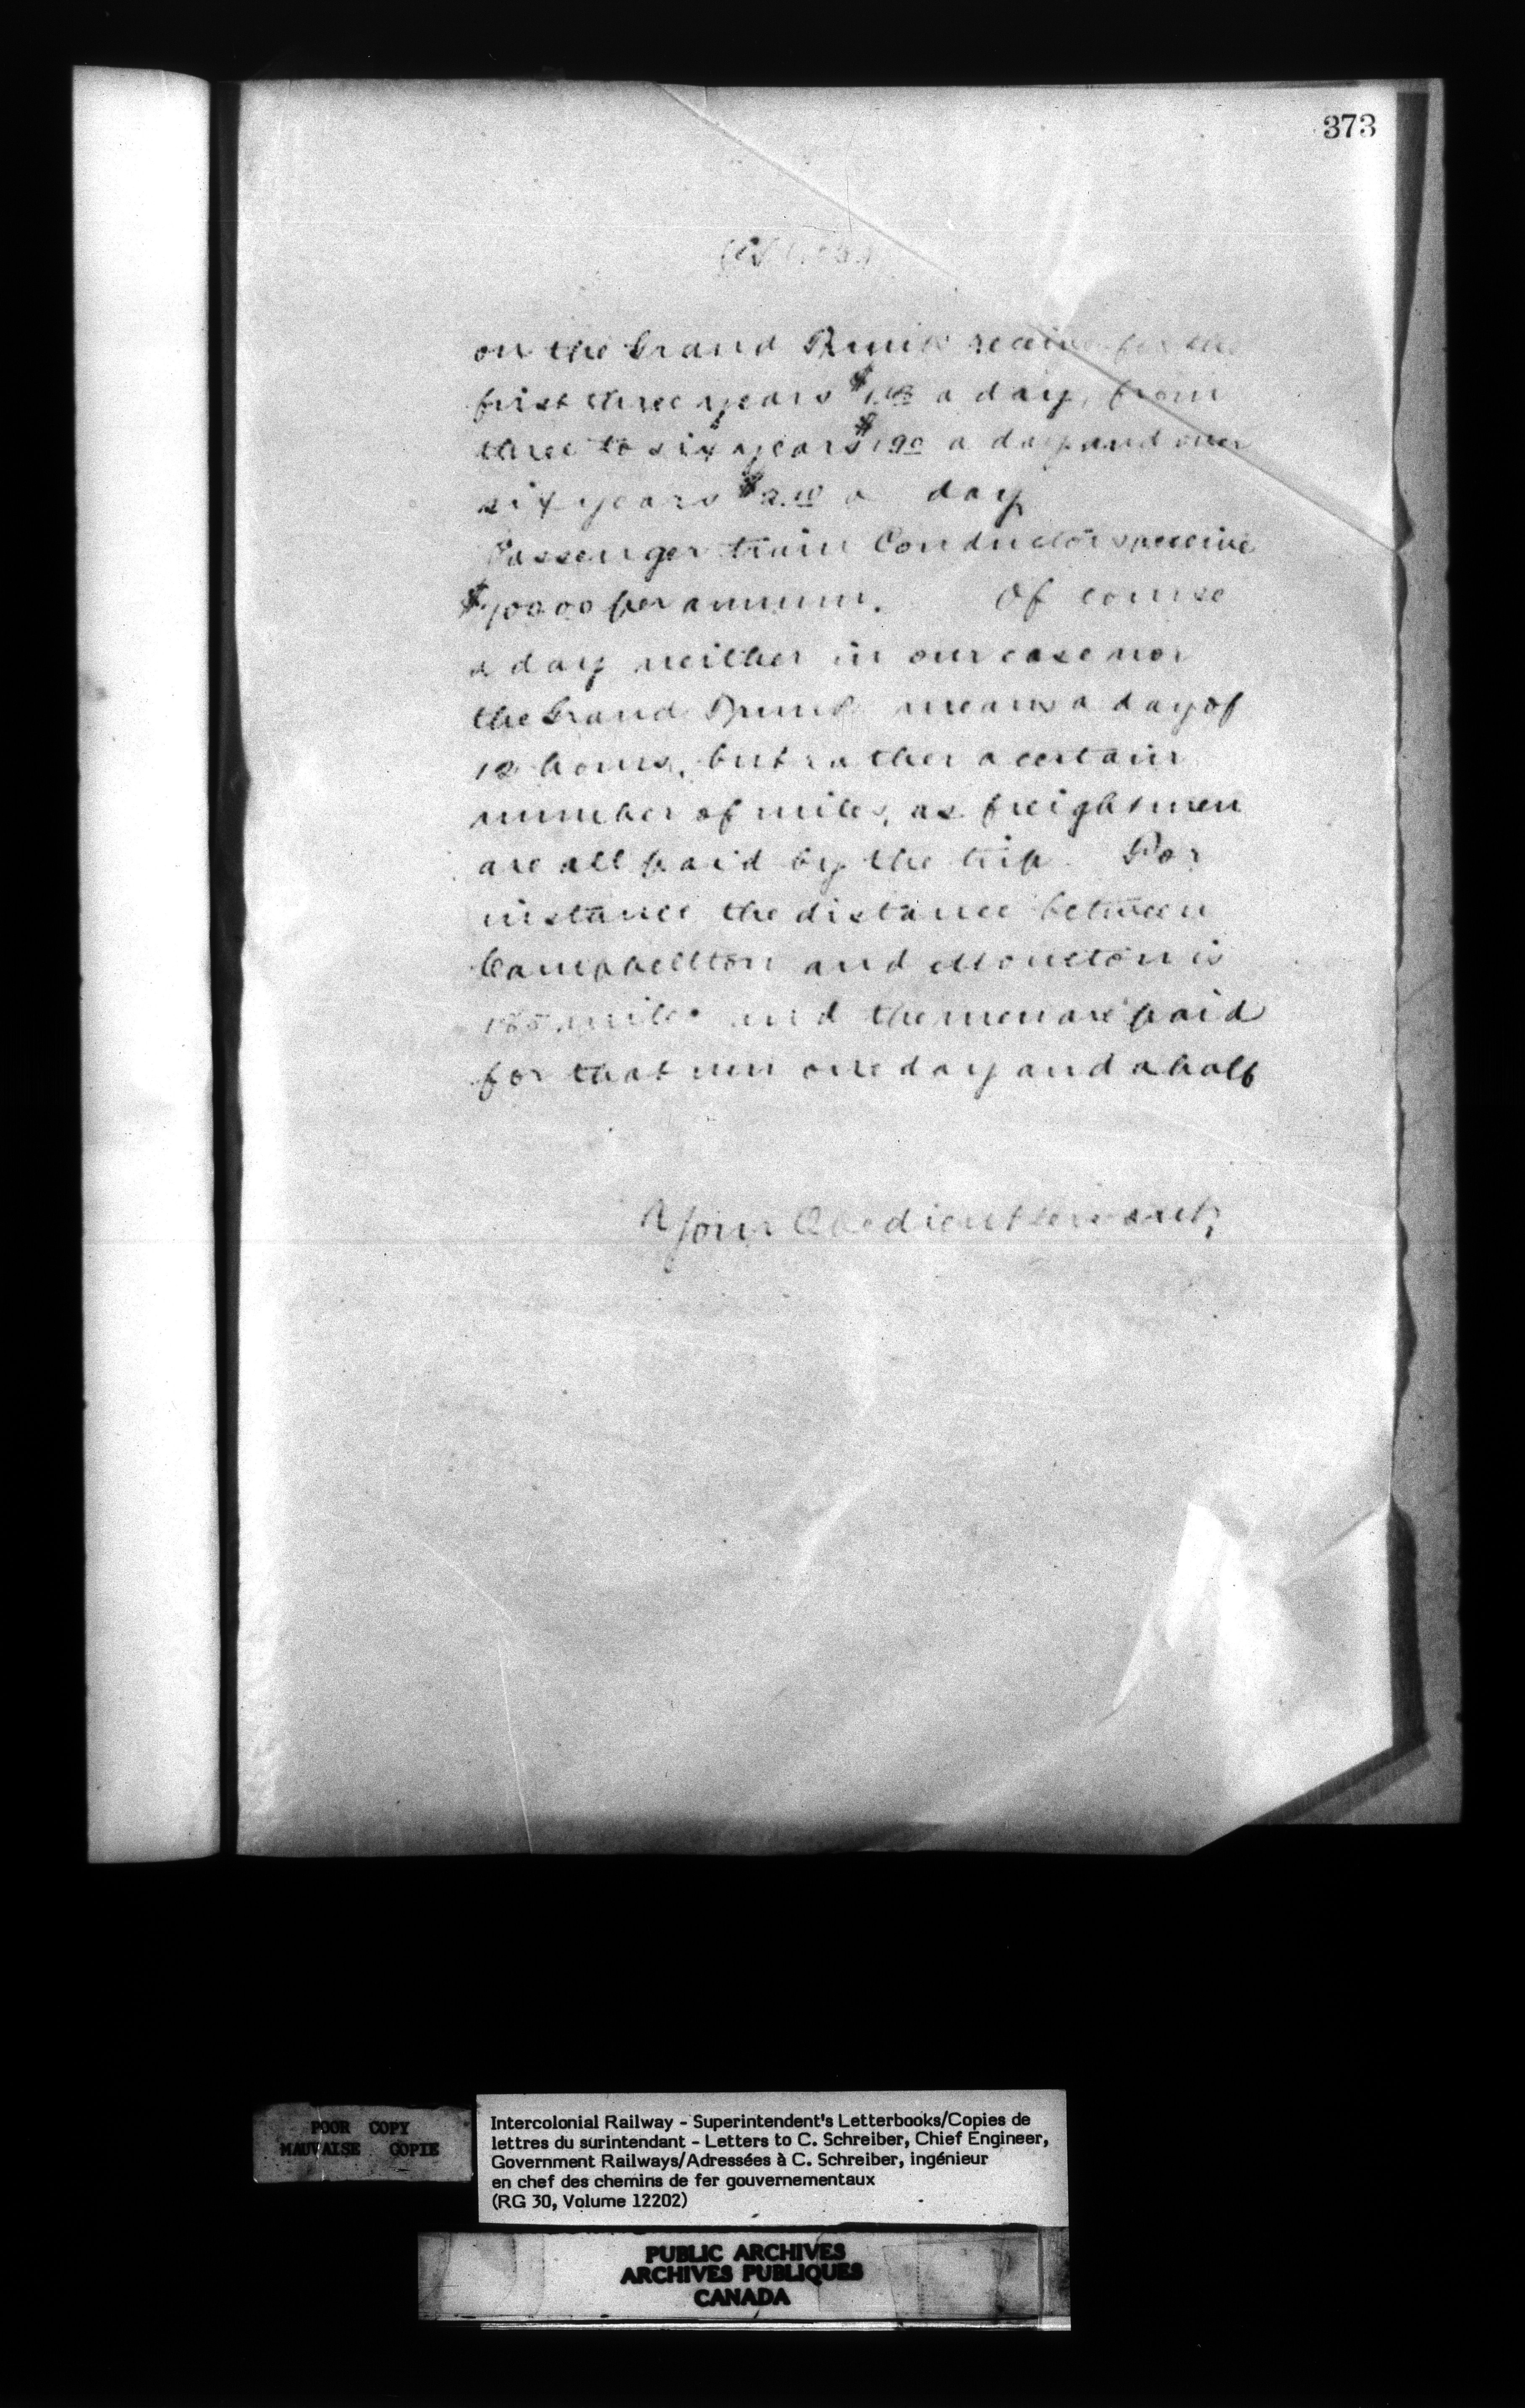 373
on the Grand Trunk receive for the
first three years $ a day, from
three to six years $1.90 a day and over
six years $2.10 a day
Passenger train Conductors receive
$700.00 per annum. Of course
a day neither in our case nor
the Grand Trunk means a day of
12 hours, but rather a certain
number of miles, as freight men
are all paid by the trip. For
instance the distance between
Campbellton and Moncton is
185 miles and the men are paid
for that run one day and a half
Your Obedient Servant,
POOR COPY
MAUVAISE COPIE
Intercolonial Railway - Superintendent's Letterbooks/Copies de
lettres du surintendant - Letters to C. Schreiber, Chief Engineer,
Government Railways/Adressées à C. Schreiber, ingénieur
en chef des chemins de fer gouvernementaux
(RG 30, Volume 12202)
PUBLIC ARCHIVES
ARCHIVES PUBLIQUES
CANADA